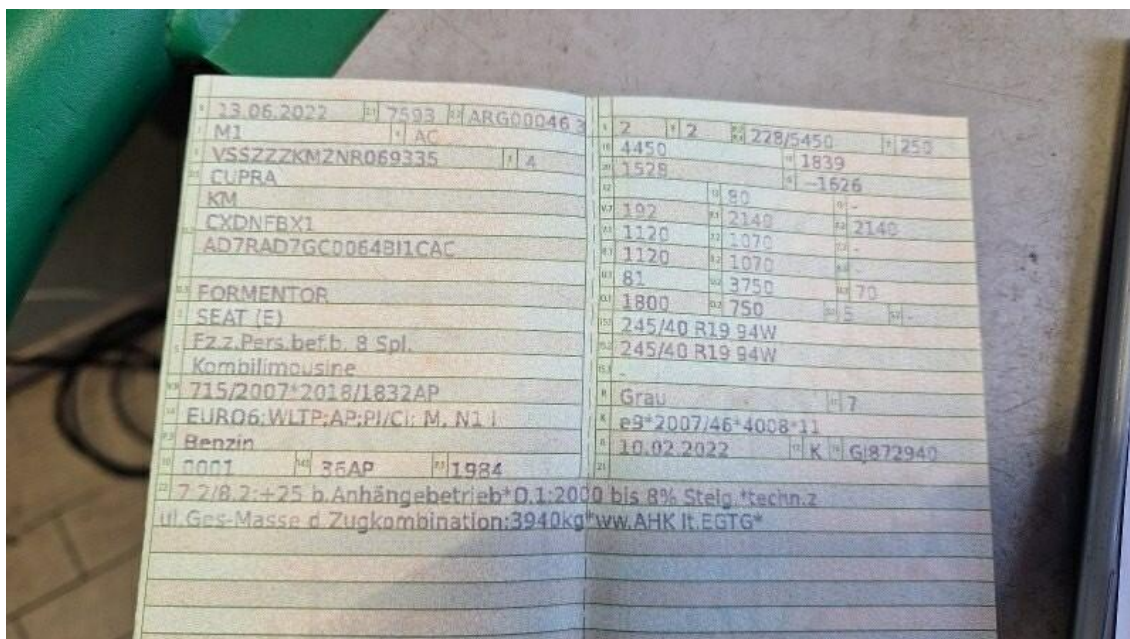 13.06.2022 7593 ARG00046 3
M1 AC
VSSZZZKMZNR069335 4
CUPRA
KM
CXDNFBX1
AD7RAD7GC0064BI1CAC
FORMENTOR
SEAT (E)
Fz.z.Pers.bef.b. 8 Spl.
Kombilimousine
715/2007*2018/1832AP
EURO6;WLTP;AP;PI/CI; M, N1 I
Benzin
0001 36AP 1984
2 2 228/5450 250
4450 1839
1528 -1626
80 -
192 2140 2140
1120 1070 -
1120 1070 -
81 3750 70
1800 750 5 -
245/40 R19 94W
245/40 R19 94W
-
Grau 7
e9*2007/46*4008*11
10.02.2022 K GJ872940
21
22 7.2/8.2:+25 b.Anhängebetrieb*O.1:2000 bis 8% Steig.*techn.z
ul.Ges-Masse d.Zugkombination:3940kg*ww.AHK lt.EGTG*